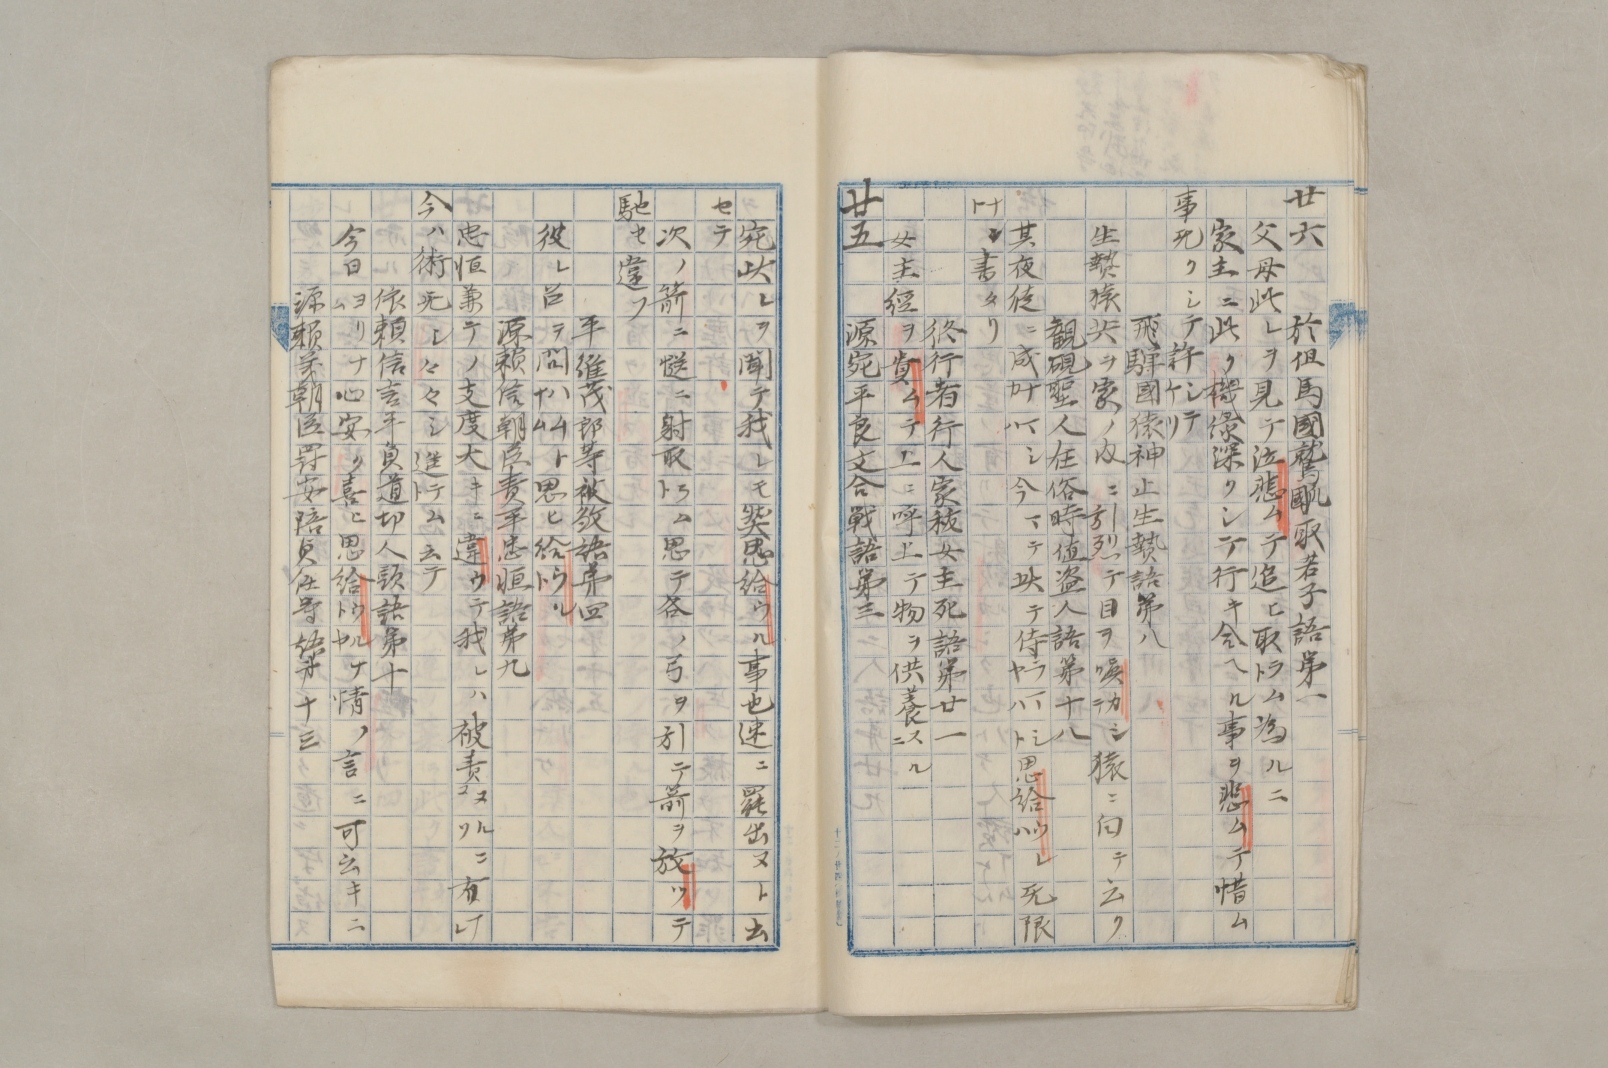 廿六　於但馬國鷲䴏取若子語第一
父母此レヲ見テ泣悲ムテ追ヒ取ラムト為ルニ
家主ニ此ク機縁深クシテ行キ合ヘル事ヲ悲ムテ惜ム
事无クシテ許シテケリ
飛騨國猿神止生贄語第八
生贄猿共ヲ家ノ内ニ引烈テ目ヲ嗔カシテ猿ニ向テ云ク
觀硯聖人在俗時値盗人語第十八
其夜徒ニ成ナバカハシ今マテ此テ侍ラハヤハト思給ウレハ无限
トナン書タリ
於行者行人家秡女主死語第廿一
女主經ヲ貴ムテ上ニ呼上テ物ヲ供養スルニ
廿五　源宛平良文合戰語第三
宛此レヲ聞テ我レモ然思給ウル事也速ニ罷出ヌト云
セテ
次ノ箭ニ慥ニ射取ラムト思テ各ノ弓ヲ引テ箭ヲ放ツテ
馳セ違フ
平維茂郎等被殺語第四
彼レ呂ヲ問ハムナムト思ヒ給ウルト
源頼信朝臣責平忠恒語第九
忠恒兼テノ支度大キニ違ウテ我レハ被責ヌルコソニ有レ
今ハ術无シ々々シ進テムト云テ
依頼信言平貞道切人頭語第十
今日ヨリナム心安ク喜ヒ思給ウルトヤナ情ノ言ニ可云キニ
源頼義朝臣罸安陪貞任等語第十三